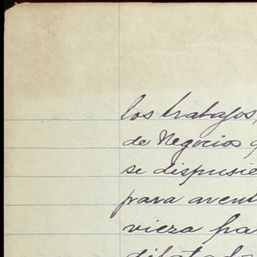 los trabajos,
de Negocios q
se dispusie
para avent
viera pa
dilatada